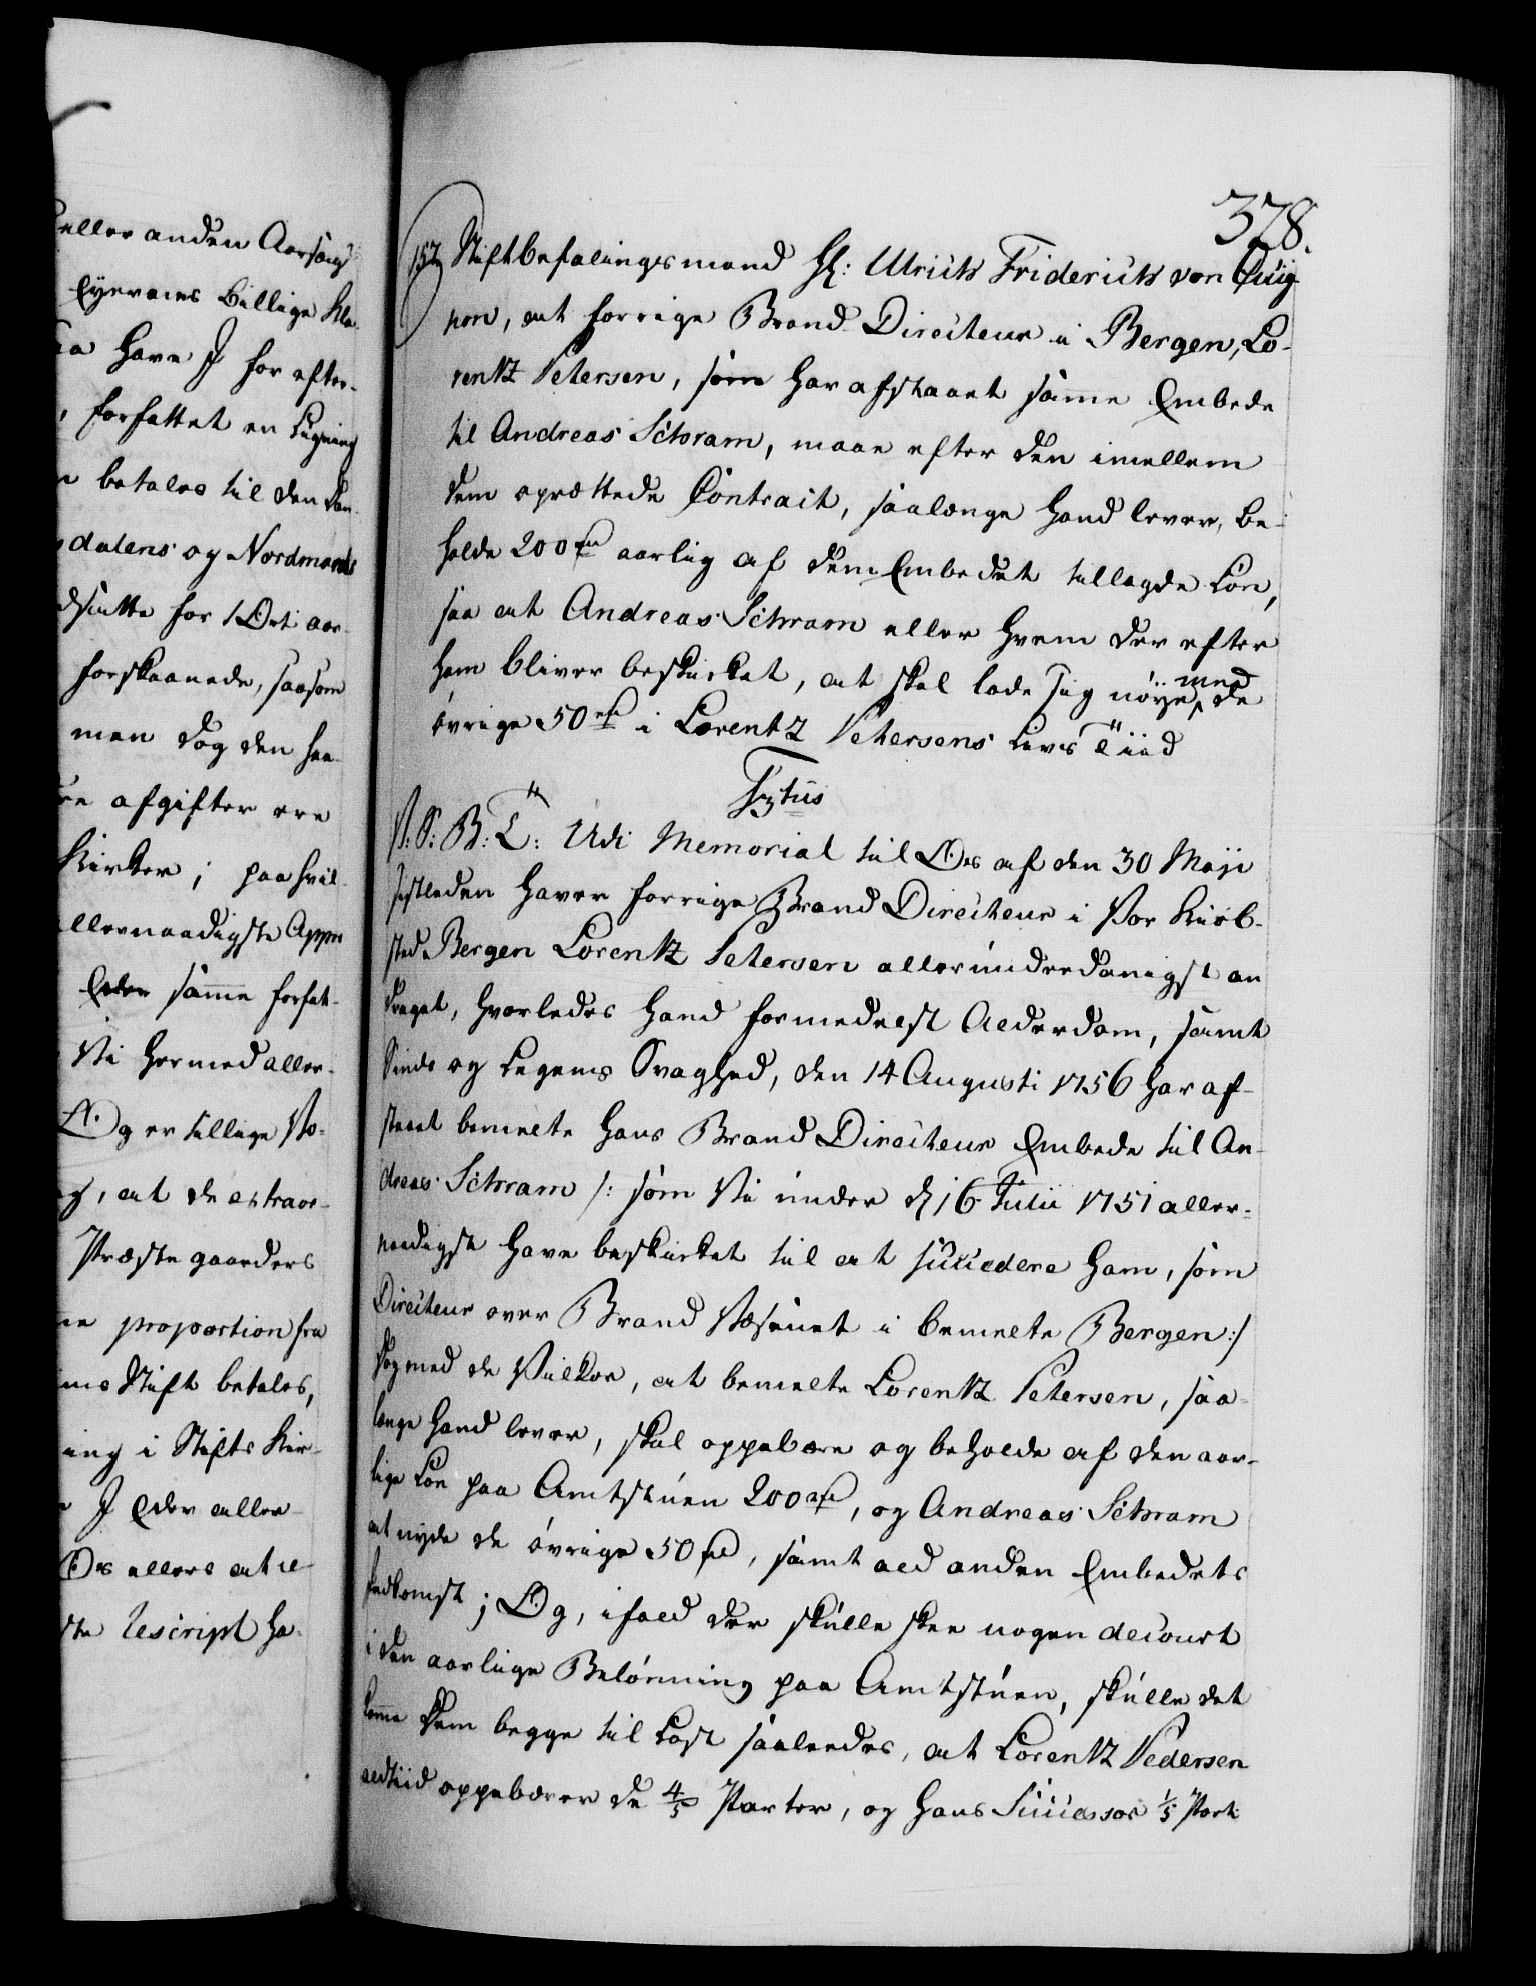 eller anden Aarsag
Eyernes billige Kla-
saa have I her efter-
, forfattet en Ligning
betales til den
dalens og Nordmørds
for 1 Ort aar-
forskaanede, saasom
men dog den
afgifter ere
Kirker; paahvil-
allernaadigste Appro
Eder samme forfat-
Vi hermed aller-
Og er tillige Vo-
, at de extraor-
Præstegaarders
proportion fra
Stift betales,
ing i Stifts Kir-
I Eder aller-
Os allers at
Rescript ha-
378.
157 Stiftbefalingsmand Hl: Ulrich Friderich von Cuig-
non, at forrige Brand Directeur i Bergen, Lo-
rentz Petersen, som har afstaaet samme Embede
til Andreas Schram, maae efter den imellem
dem oprættede Contract, saalænge hand lever, be-
holde 200 rdr aarlig af dem Embedet tillagde Løn,
saa at Andreas Schram eller hvem der efter
ham bliver beskikket, at skal lade sig nøye med de
øvrige 50 rdr i Lorentz Petersens Livs Tiid
F 5tus
V: S: B: T: Udi Memorial til Os af den 30 Maji
sistleden haver forrige Brand Directeur i Vor Kiøb-
sted Bergen Lorentz Petersen allerunderdanigst an
draget, hvorledes hand formedelst Alderdom, samt
Sinds og Legems Svaghed, den 14 Augusti 1756 har af-
staaet bemelte hans Brand Directeur Embede til An-
dreas Schram /: som Vi under d 16 Julii 1751 aller-
naadigst have beskikket til at succedere ham, som
Directeur over Brand Væsenet i bemelte Bergen :/
dog med de Vilkor, at bemelte Lorentz Petersen, saa-
længe hand lever, skal oppebære og beholde af den aar-
lige Løn paa Amtstuen 200 rdr, og Andreas Schram
at nyde de øvrige 50 rdr, samt ald anden Embedets
Indkomst; Og, ifald der skulle skee nogen decourt
i den aarlige Belønning paa Amtstuen, skulle det
komme dem begge til Last saaledes, at Lorentz Pedersen
altiid oppebærer de 4/5 Parter, og hans Successor 1/5 Part